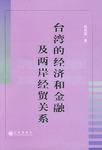 台湾的经济和金融
及两岸经贸关系
著